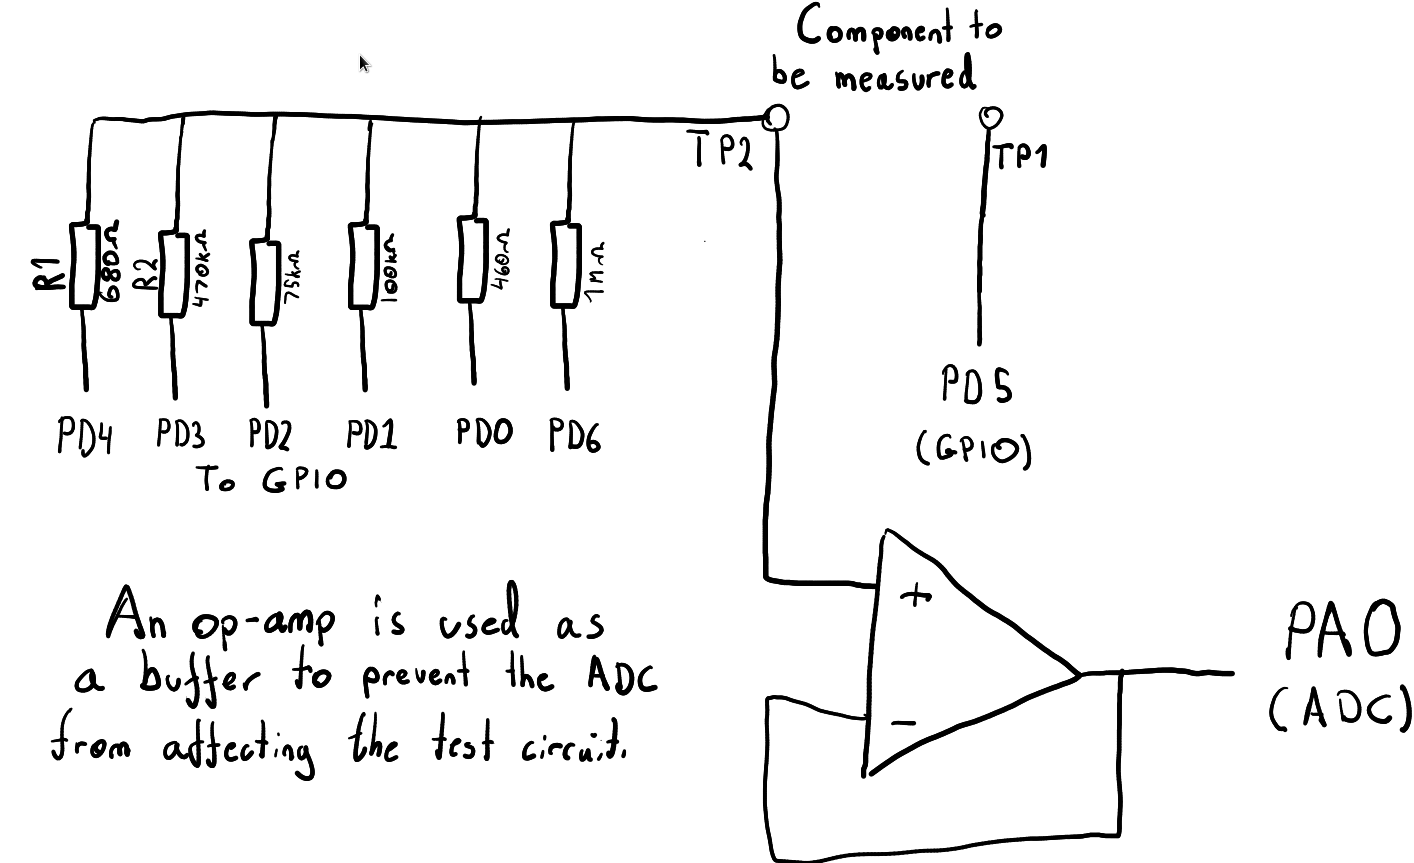 Component to
be measured
TP2
TP1
R1
680Ω
R2
470kΩ
75kΩ
100kΩ
460Ω
1MΩ
PD4 PD3 PD2 PD1 PD0 PD6
To GPIO
PD5
(GPIO)
+
-
PA0
(ADC)
An op-amp is used as
a buffer to prevent the ADC
from affecting the test circuit.